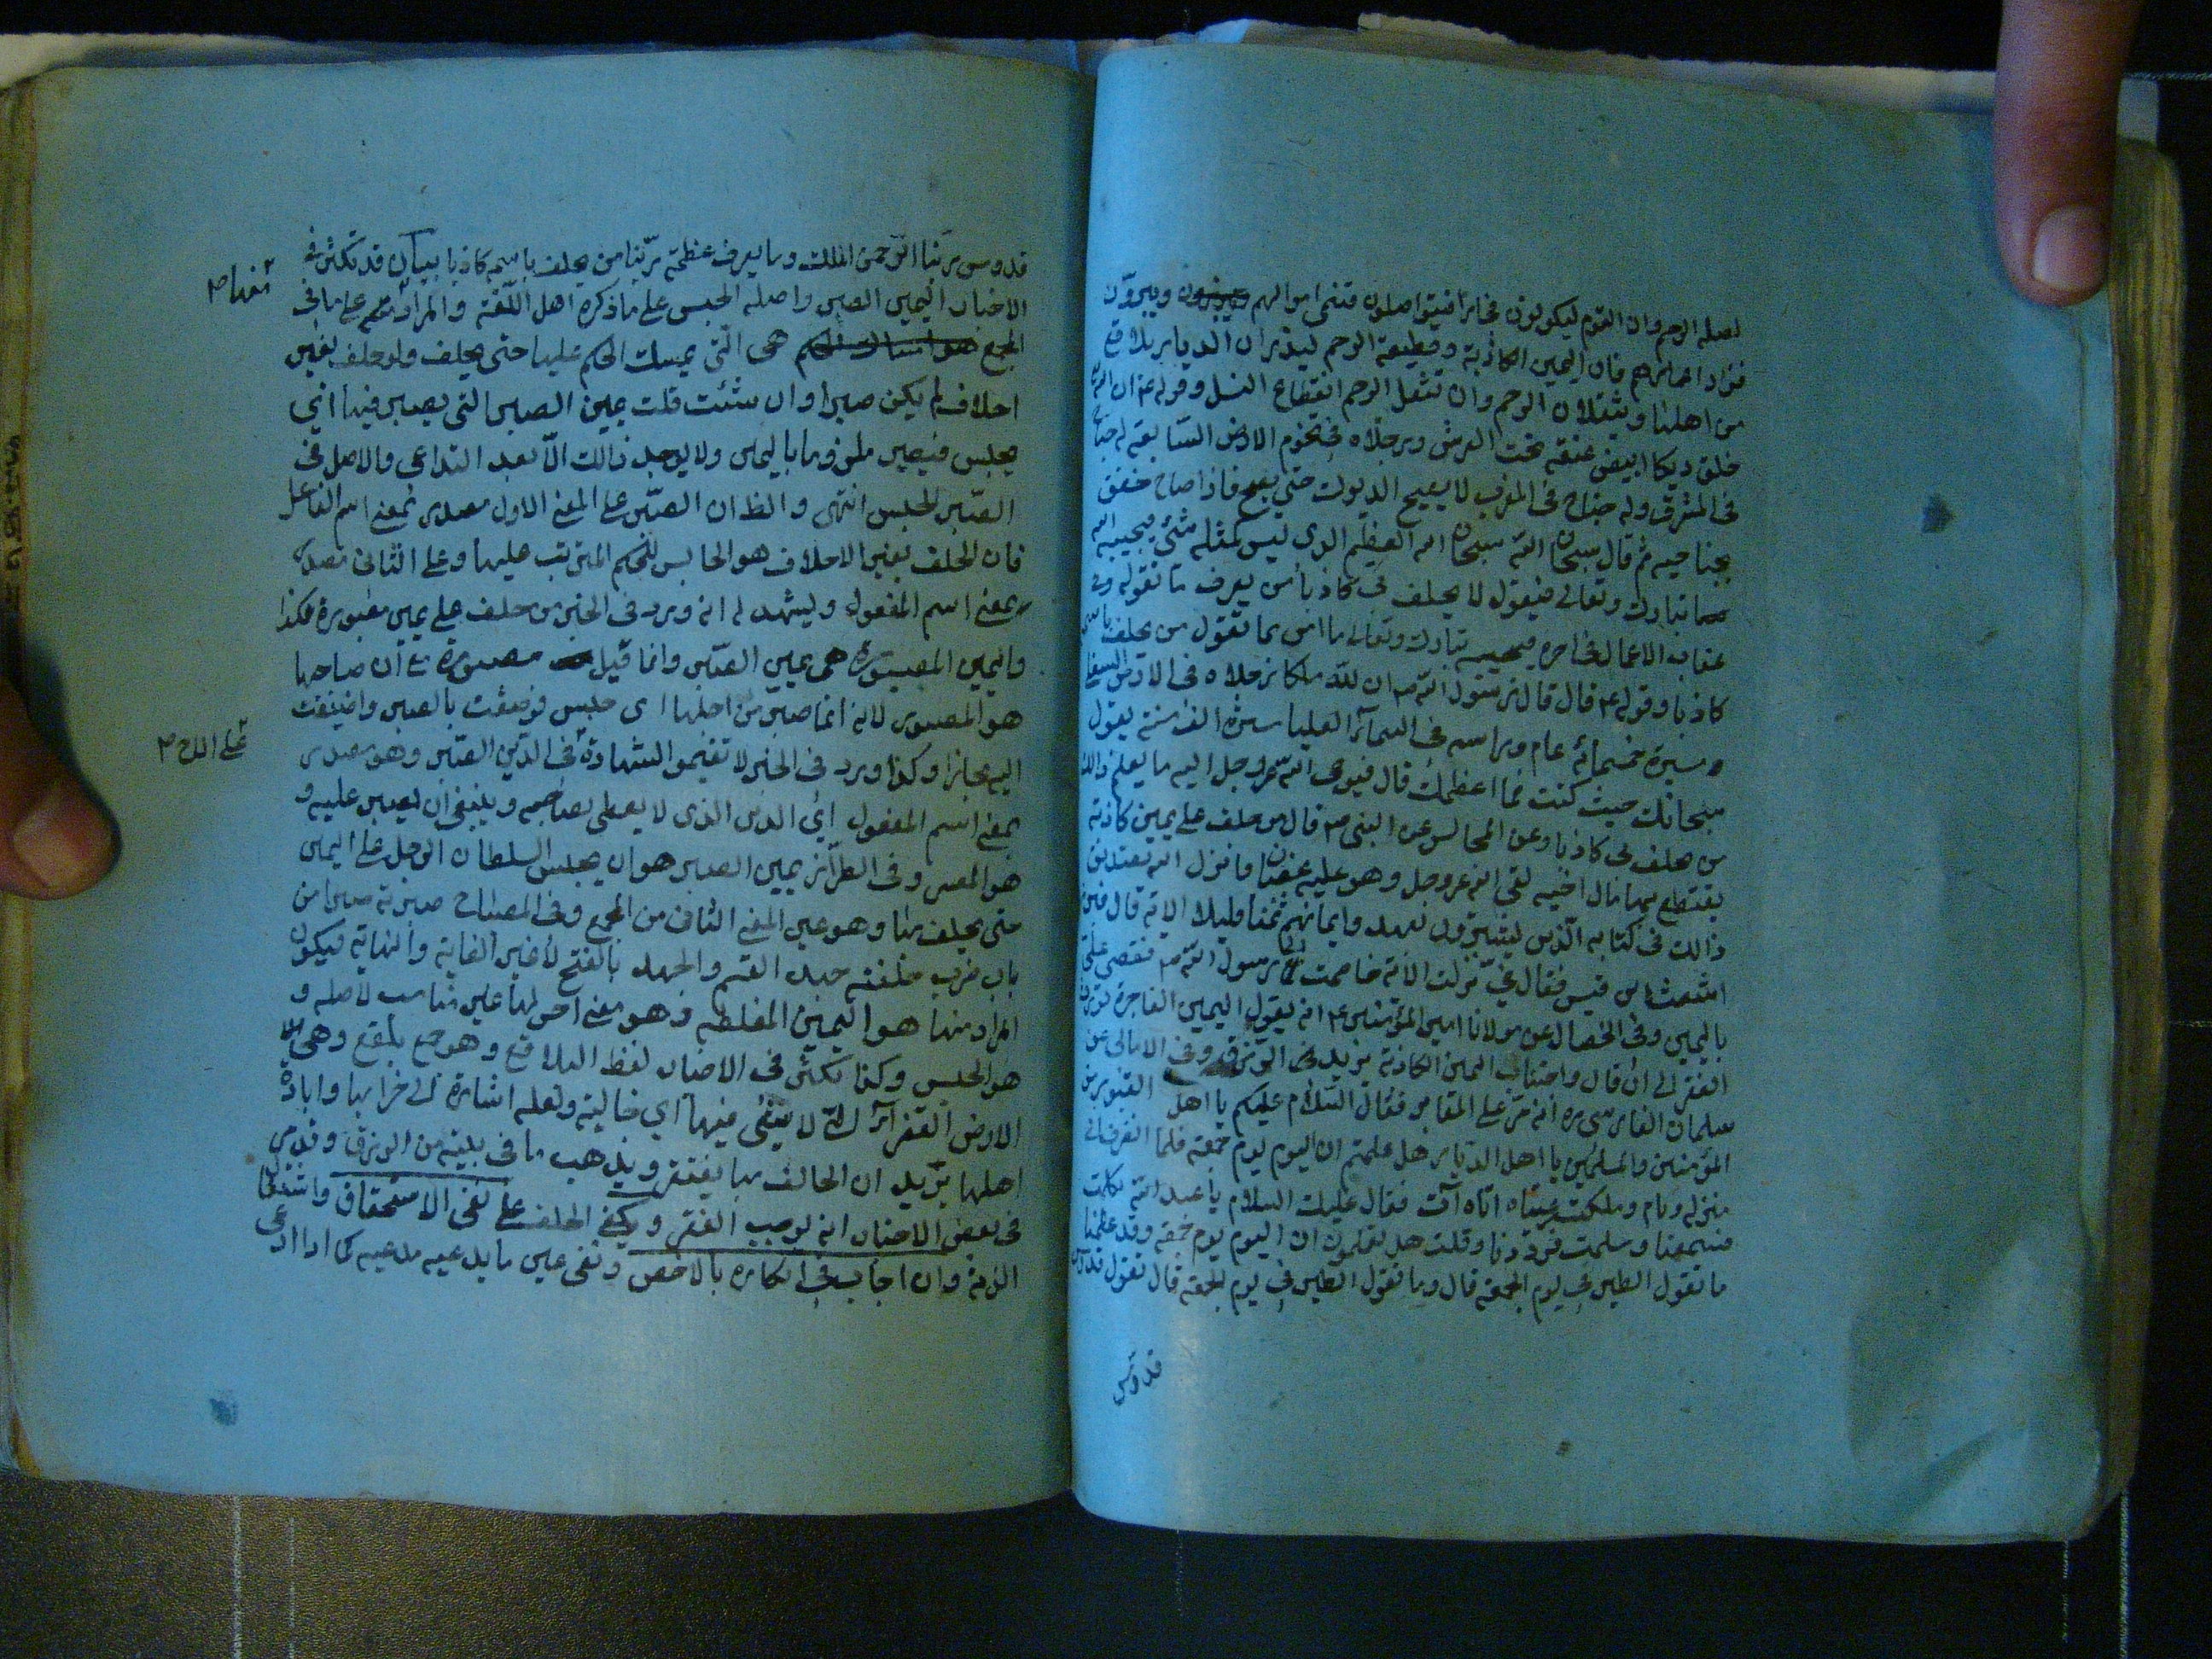 لصلة الرحم وان القوم ليكونون فجارا فيتواصلون فتنمى اموالهم ويبرون
فتزداد اعمارهم فان اليمين الكاذبة وقطيعة الرحم ليذران الديار بلاقع
من اهلها ويثقلان الرحم وان تثقل الرحم انقطاع النسل وقوله ع ان الله
خلق ديكا ابيض عنقه تحت العرش ورجلاه في تخوم الارض السابعة له جناح
في المشرق وله جناح في المغرب لا يصيح الديوك حتى يصيح فاذا صاح خفق
بجناحيه ثم قال سبحان الله سبحان الله العظيم الذي ليس كمثله شئ فيجيبه الله
تبارك وتعالى فيقول لا يحلف بي كاذبا من يعرف ما تقوله وفي
عقاب الاعمال في اخره فيجيبه تبارك وتعالى ما امن بما تقول من يحلف باسمي
كاذبا وقوله ع قال قال رسول الله ص ان لله ملكا رجلاه في الارض السفلى
مسيرة خمسمائة عام وراسه في السماء العليا مسيرة الف سنة يقول
سبحانك حيث كنت فما اعظمك قال فيوحى الله عز وجل اليه ما يعلم ذلك
من يحلف بي كاذبا وعن المجالس عن النبي ص قال من حلف على يمين كاذبة
يقتطع بها مال اخيه لقى الله عز وجل وهو عليه غضبان فانزل الله تصديق
ذالك في كتابه الذين يشترون بعهد وايمانهم ثمنا قليلا الاية قال فبرز
اشعث ابن قيس فقال في نزلت الاية خاصمت الى رسول الله ص فقضى على
باليمين وفي الخصال عن مولانا امير المؤمنين ع انه يقول اليمين الفاجرة تورث
الفقر الى ان قال واجتناب اليمين الكاذبة يزيد في الرزق وفي الامالي عن
سلمان الفارسي ره انه مر على المقابر فقال السلام عليكم يا اهل القبور من
المؤمنين والمسلمين يا اهل الديار هل علمتم ان اليوم يوم جمعة فلما انصرف الى
منزله ونام وملكته عيناه اتاه آت فقال عليك السلام يا عبد الله تكلمت
فسمعنا وسلمت فرددنا وقلت هل تعلمون ان اليوم يوم جمعة وقد علمنا
ما تقول الطير في يوم الجمعة قال وما تقول الطير في يوم الجمعة قال تقول قدوس
قدوس
قدوس ربنا الرحمن الملك وما يعرف عظمة ربنا من يحلف باسمه كاذبا بيان قد تكثر في
الاخبار اليمين الصبر واصله الحبس على ما ذكره اهل اللغة والمراد على ما في
المجمع هى التي يمسك الحكم عليها حتى يحلف ولو حلف بغير
احلاف لم يكن صبرا وان شئت قلت يمين الصبر التي يصبر فيها اي
يحبس فيصير ملزوما باليمين ولا يوجد ذالك الا بعد التداعي والاصل في
الصبر الحبس انتهى والظ ان الصبر على المعنى الاول مصدر بمعنى اسم الفاعل
فان الحلف بغير الاحلاف هو الحابس للحكم المترتب عليها وعلى الثاني مصدر
بمعنى اسم المفعول ويشهد له انه ورد في الخبر من حلف على يمين مصبورة هكذا
واليمين المصبورة هى يمين الصبر وانما قيل مصبورة مع ان صاحبها
هو المصبور لانه انما صبر من اجلها اى حبس فوصفت بالصبر واضيفت
اليه مجازا وكذا ورد في الخبر لا تقيموا الشهادة في الدين الصبر وهو مصدر
بمعنى اسم المفعول اي الدين الذي لا يعطى صاحبه وينبغي ان يصبر عليه و
هو المعسر وفي الطراز يمين الصبر هو ان يحبس السلطان الرجل على اليمين
حتى يحلف بها وهو عين المعنى الثاني من المجمع وفي المصباح صبرته صبرا من
باب ضرب حلفته جهد القسم والجهد بالفتح لاخير الغاية والنهاية فيكون
المراد منها هو اليمين المغلظه وهو معنى اخر لها غير مناسب لاصله و
هو الحبس وكذا تكثر في الاخبار لفظ البلاقع وهو جمع بلقع وهي
الارض القفراء التي لا شئ فيها اي خالية ولعله اشارة الى خرابها وابادة
اهلها يريد ان الحالف بها يفتقر ويذهب ما في بيته من الرزق وقد مر
في بعض الاخبار انه يوجب الفقر ويكفي الحلف على نفى الاستحقاق واشتغال
الذمة وان اجاب في انكاره بالاخص ونفى عين ما يدعيه مدعيه كما اذا ادعى